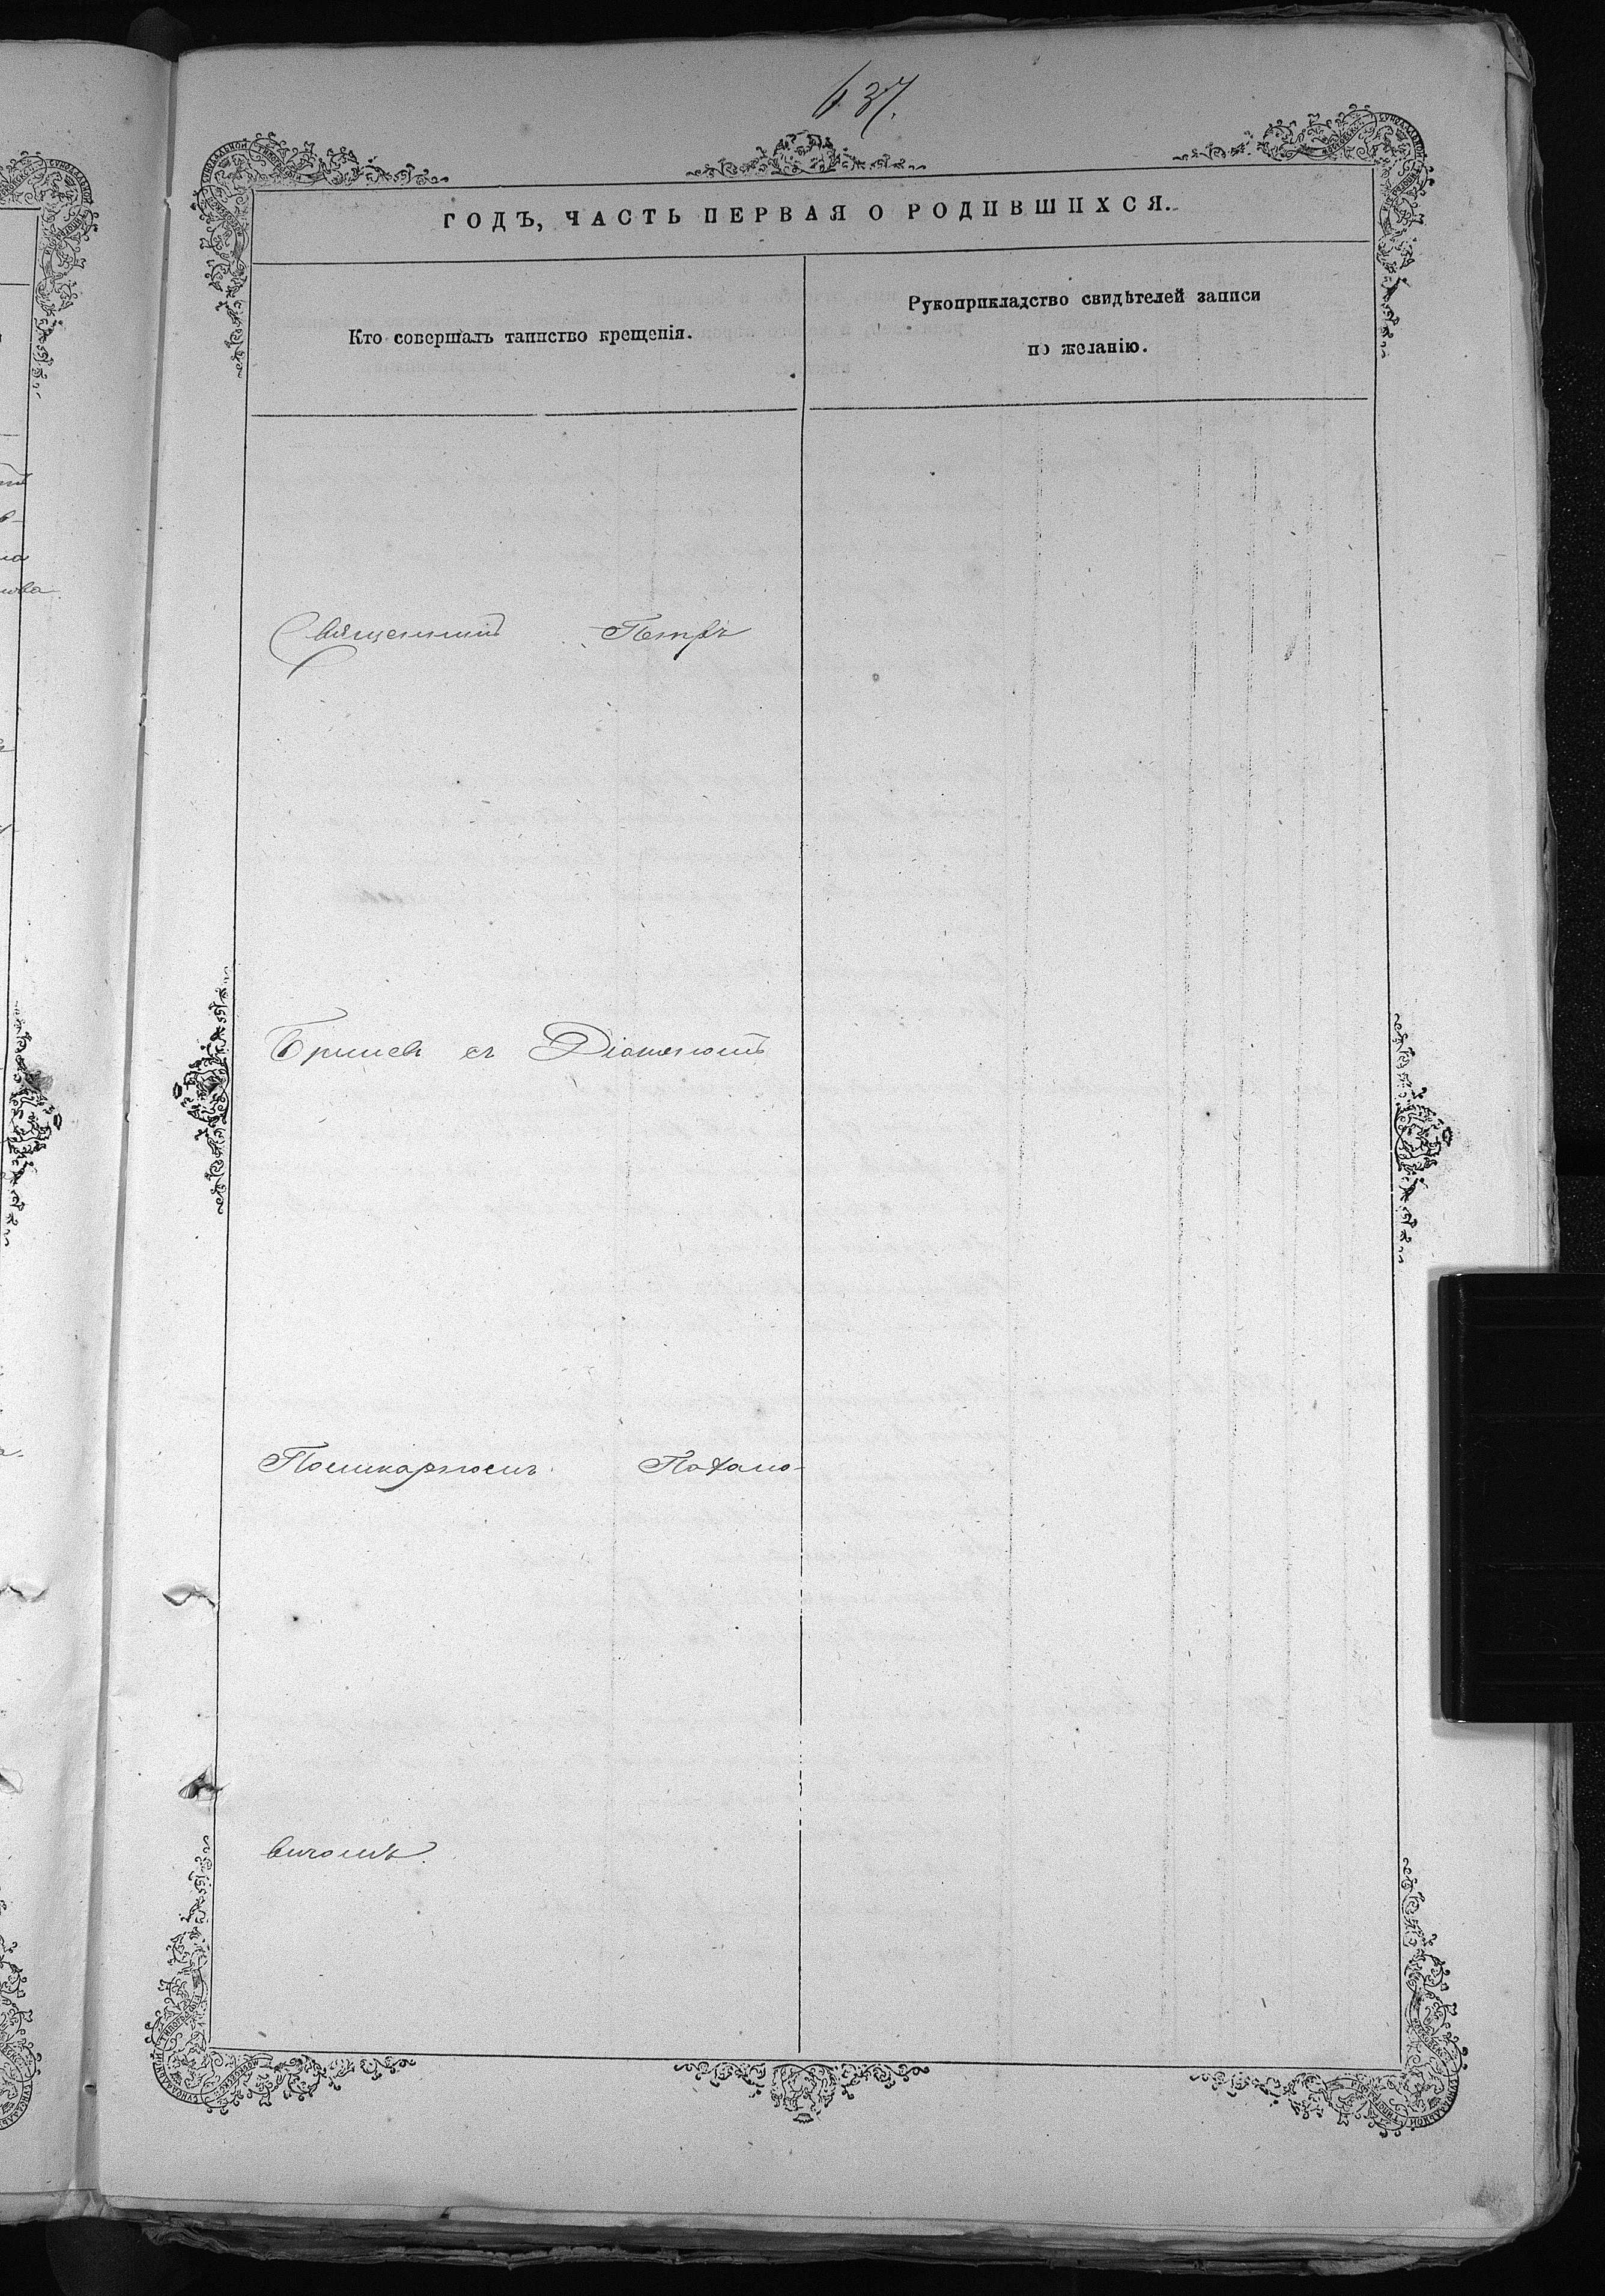 637.
ГОДЪ, ЧАСТЬ ПЕРВАЯ О РОДИВШИХСЯ.
Кто совершалъ таинство крещенія.
Рукоприкладство свидѣтелей записи
по желанію.
Священникъ Петръ
съ Діакономъ
Поликарпомъ
вичомъ.